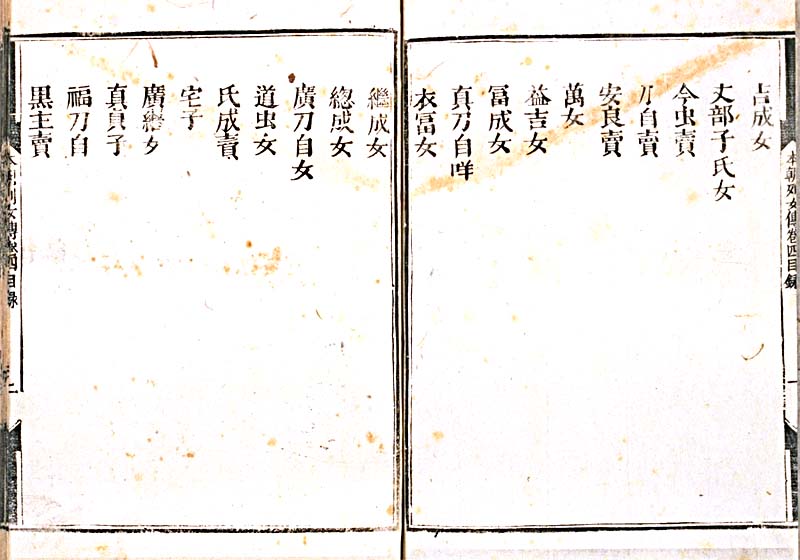 吉成女
丈部子氏女
今虫賣
刀自賣
安良賣
萬女
益吉女
冨成女
真刀自咩
衣冨女
本朝列女傳卷四目録
繼成女
總成女
廣刀自女
道虫女
氏成賣
宅子
廣繼女
真貞子
福刀自
黒主賣
本朝列女傳卷四目録